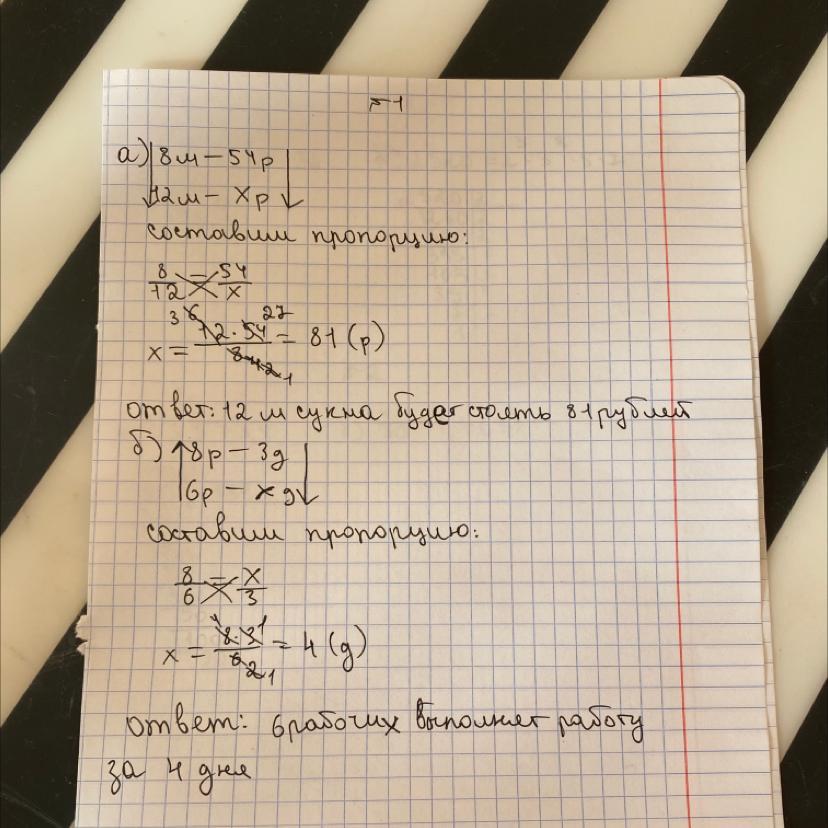 №1
а) 8м – 54р
12м – xр
составим пропорцию:
8/12 = 54/x
x = 12·54/8 = 81 (р)
ответ: 12 м сукна будет стоять 81 рублей
б) 8р – 3д
6р – x д
составим пропорцию:
8/6 = x/3
x = 8·3/6 = 4 (д)
ответ: 6 рабочих выполнят работу
за 4 дня